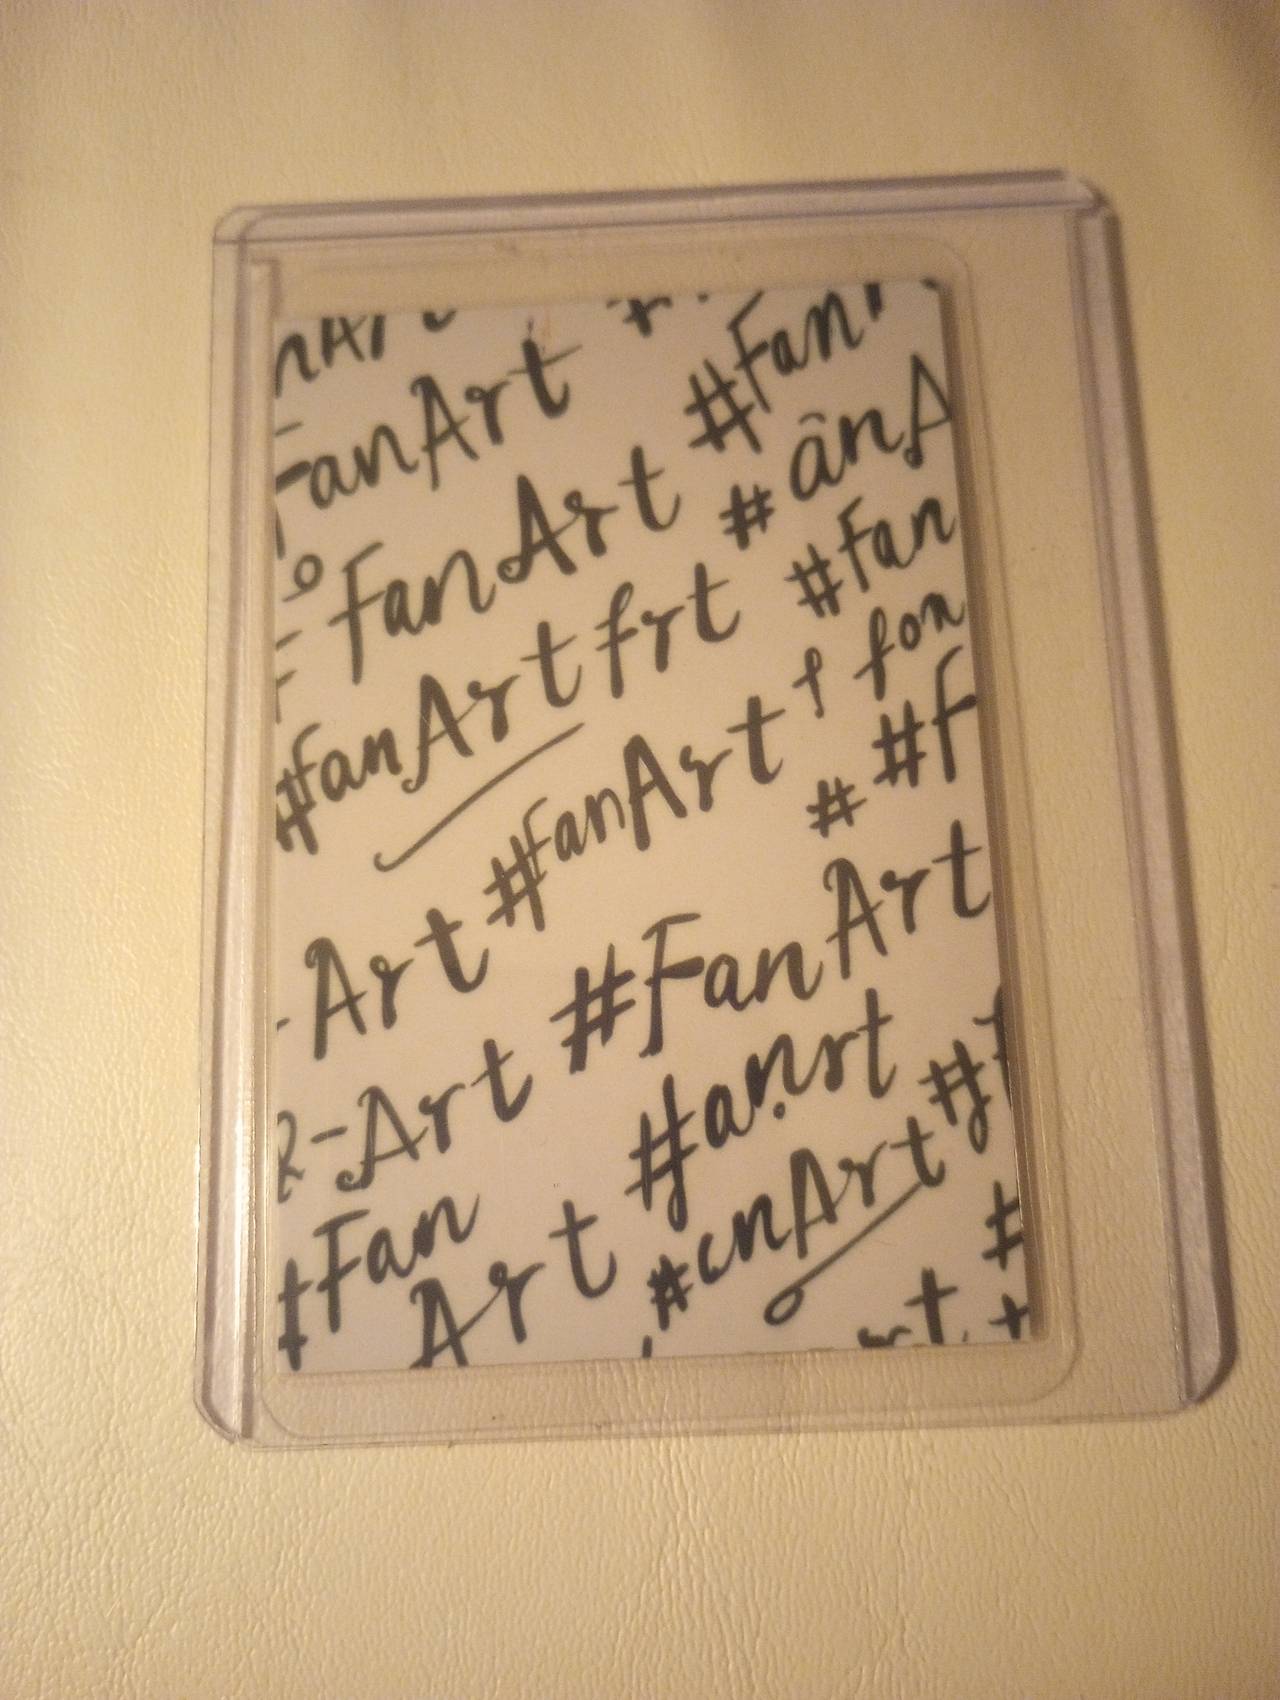 nArt
FanArt #Fan
FanArt # ânA
#fanArt frt #fan
#FanArt f fon
Art # #F
-Art #FanArt
#Fan #anrt
Art #cnArt
rt